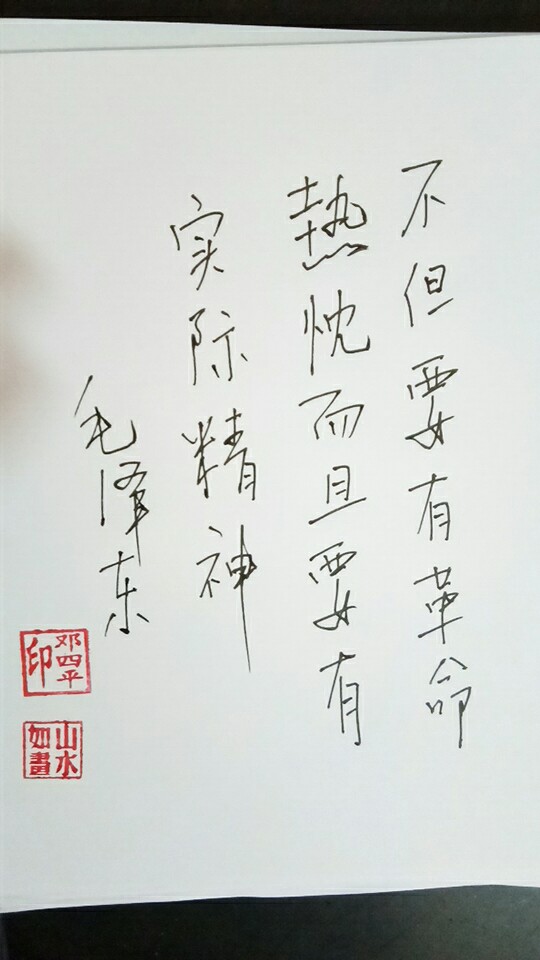 不但要有革命
熱忱而且要有
实际精神
毛泽东
邓四平印
山水如畫